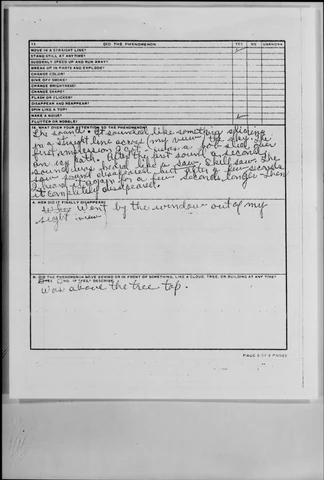 11 DID THE PHENOMENON YES NO UNKNOWN
MOVE IN A STRAIGHT LINE?
STAND STILL AT ANY TIME?
SUDDENLY SPEED UP AND RUN AWAY?
BREAK UP IN PARTS AND EXPLODE?
CHANGE COLOR?
GIVE OFF SMOKE?
CHANGE BRIGHTNESS?
CHANGE SHAPE?
FLASH OR FLICKER?
DISAPPEAR AND REAPPEAR?
SPIN LIKE A TOP?
MAKE A NOISE?
FLUTTER OR WOBBLE?
WHAT DREW YOUR ATTENTION TO THE PHENOMENON?
The sound. It sounded like something
in a straight line across my view the sky. The
first impression I got - was a bob-sled over
an icy path. After the first sound a second
sound was heard like a saw. Skill saw. The
saw sound disappeared but after a few seconds
I heard it again for a few seconds longer then
it completely disappeared.
A. HOW DID IT FINALLY DISAPPEAR?
Went by the window out of my
sight (view)
B. DID THE PHENOMENON MOVE BEHIND OR IN FRONT OF SOMETHING, LIKE A CLOUD, TREE, OR BUILDING AT ANY TIME?
YES NO. IF "YES," DESCRIBE.
was above the tree top.
PAGE 5 OF 8 PAGES